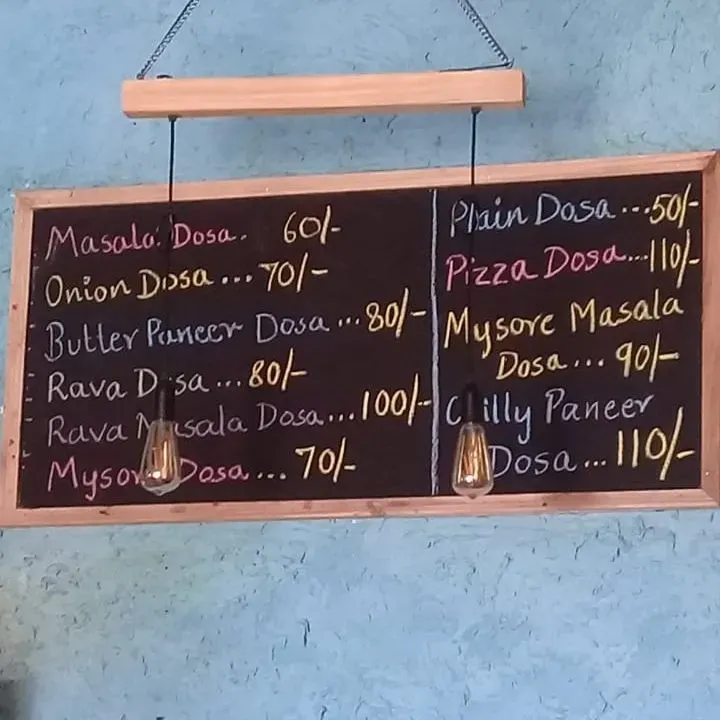 Masala Dosa. 60/-
Onion Dosa ... 70/-
Butter Paneer Dosa ... 80/-
Rava Dosa ... 80/-
Rava Masala Dosa ... 100/-
Mysore Dosa ... 70/-
Plain Dosa ... 50/-
Pizza Dosa ... 110/-
Mysore Masala
Dosa ... 90/-
Chilly Paneer
Dosa ... 110/-